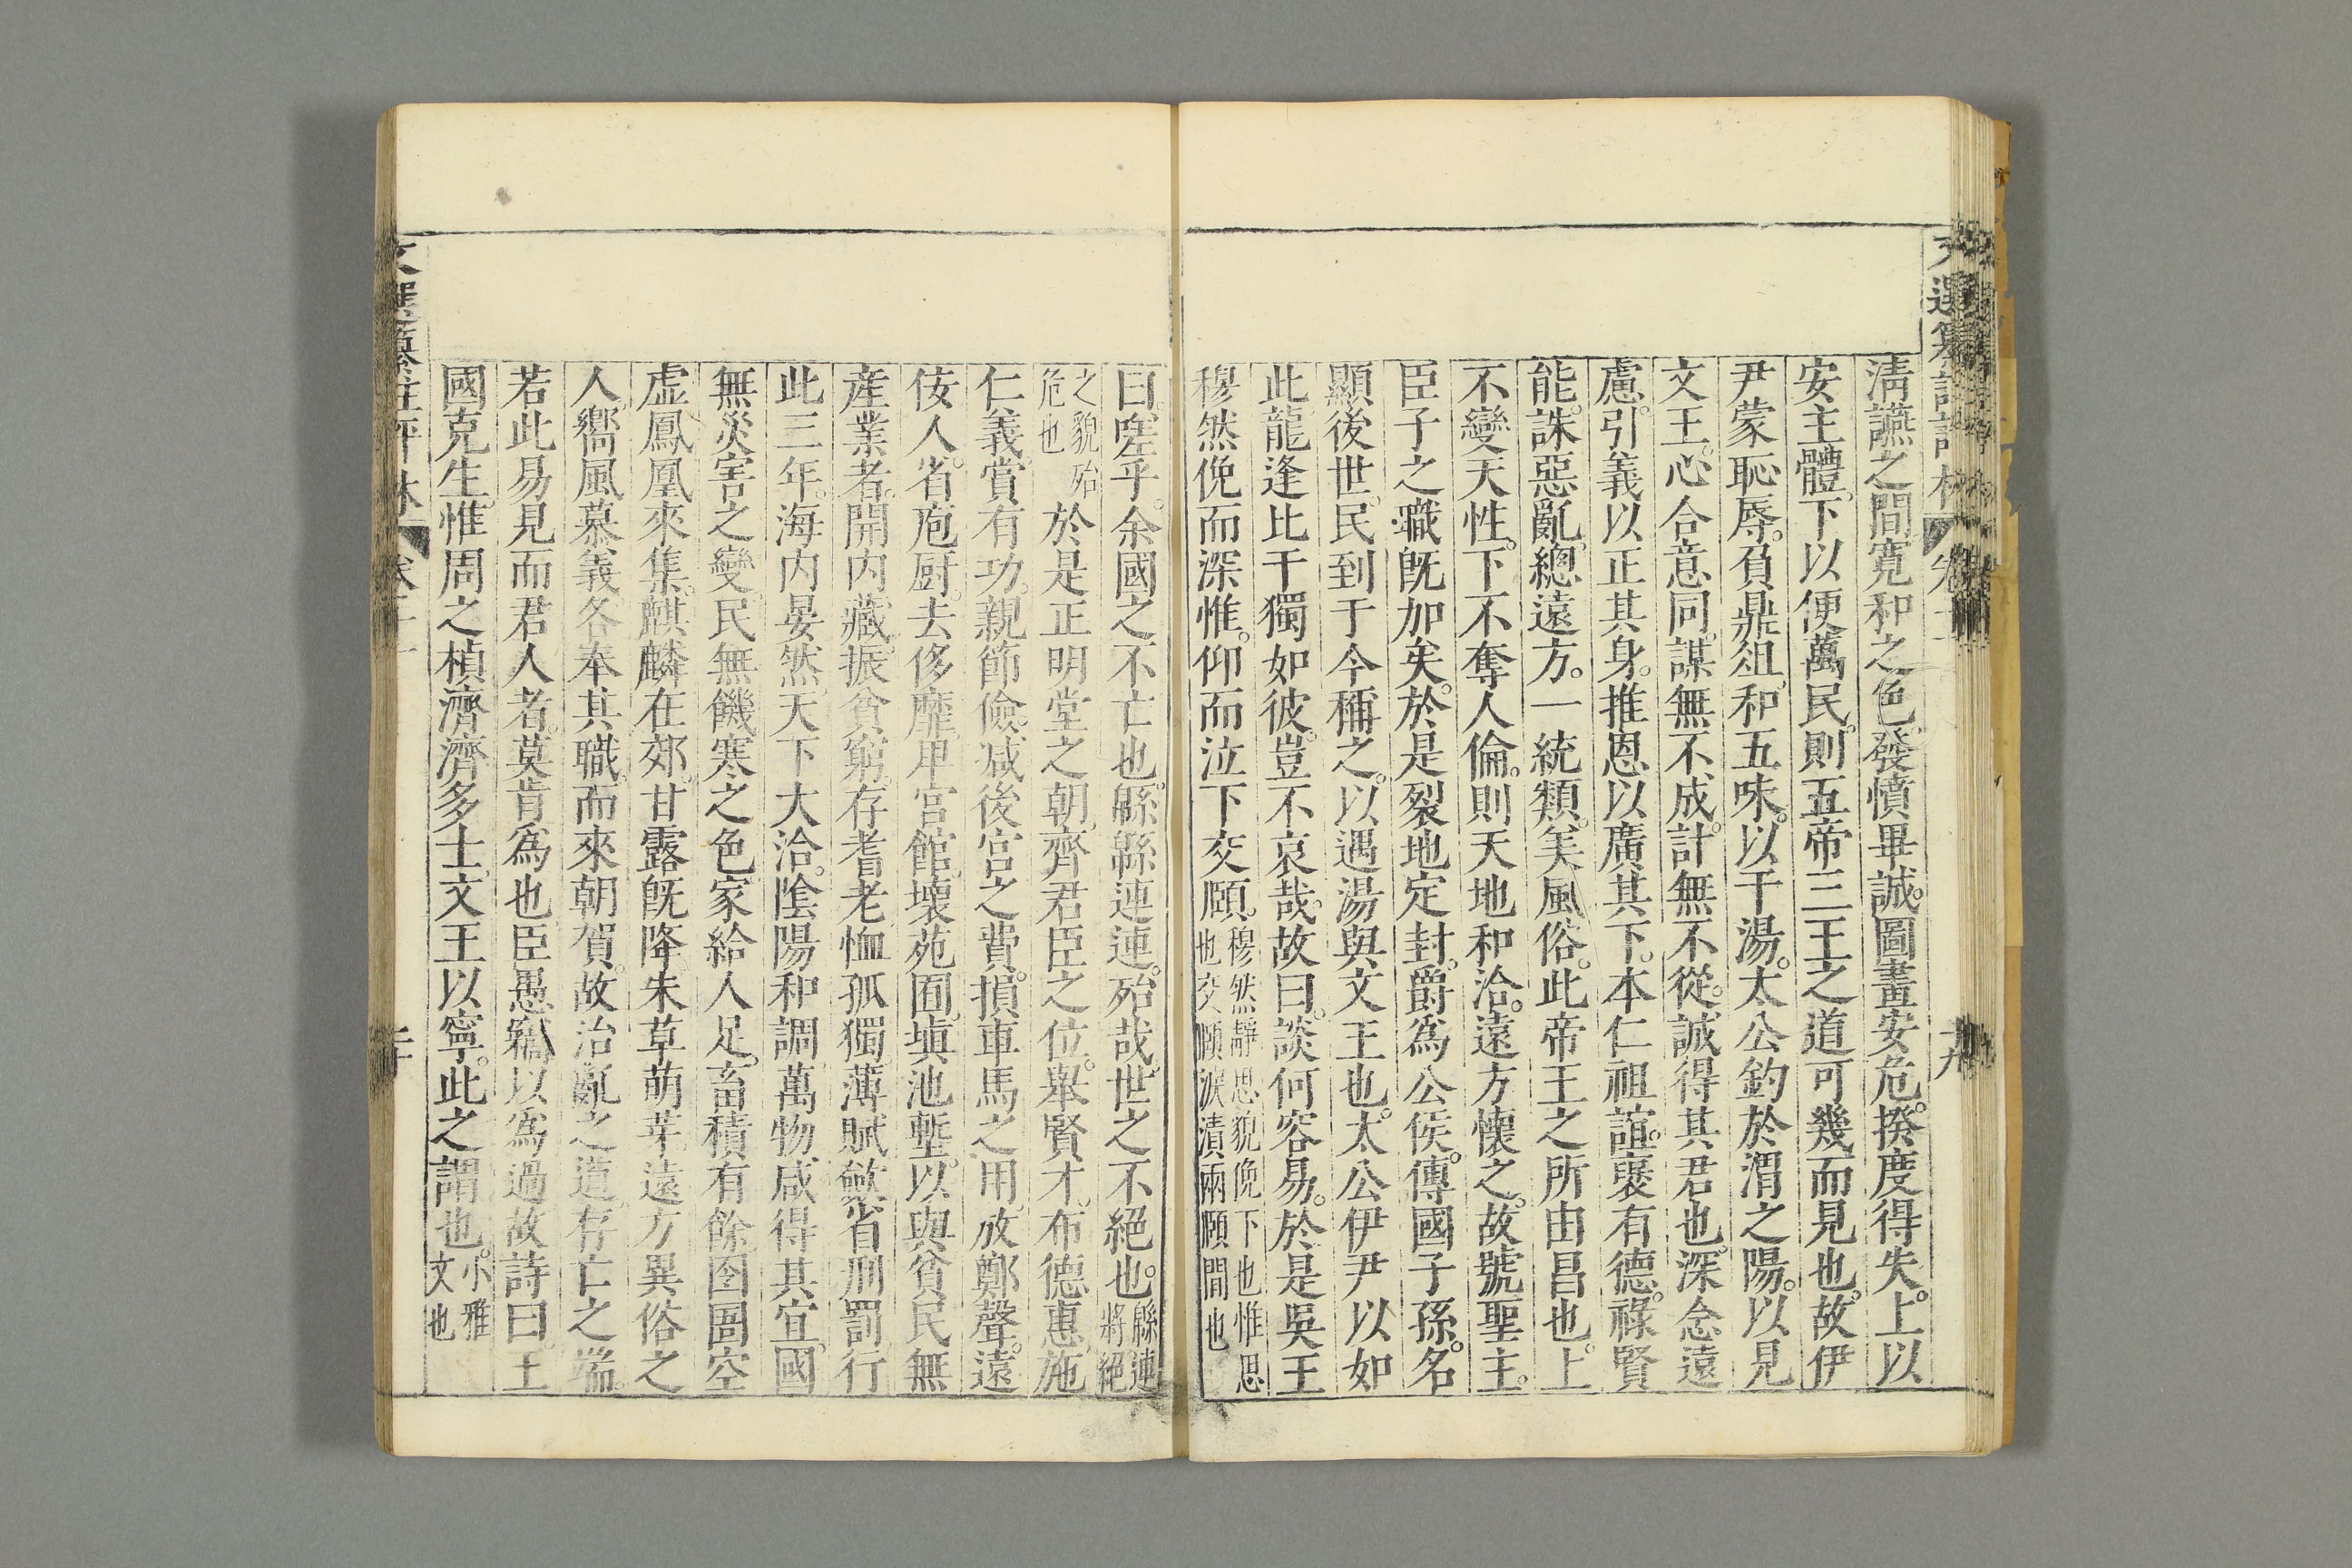 清讌之間寬和之色發憤畢誠圖畫安危揆度得失上以
安主體下以便萬民則五帝三王之道可幾而見也故伊
尹蒙恥辱負鼎俎和五味以干湯太公釣於渭之陽以見
文王心合意同謀無不成計無不從誠得其君也深念遠
慮引義以正其身推恩以廣其下本仁祖誼襃有德祿賢
能誅惡亂總遠方一統類美風俗此帝王之所由昌也上
不變天性下不奪人倫則天地和洽遠方懷之故號聖主
臣子之職既加矣於是裂地定封爵為公侯傳國子孫名
顯後世民到于今稱之以遇湯與文王也太公伊尹以如
此龍逢比干獨如彼豈不哀哉故曰談何容易於是吳王
穆然俛而深惟仰而泣下交頤穆然靜思貌俛下也惟思也交頤淚漬兩頤間也
曰嗟乎余國之不亡也緜緜連連殆哉世之不絕也緜連將絕
之貌殆危也於是正明堂之朝齊君臣之位舉賢才布德惠施
仁義賞有功親節儉减後宮之費損車馬之用放鄭聲遠
佞人省庖厨去侈靡卑宮館壞苑囿塡池塹以與貧民無
產業者開內藏振貧窮存耆老恤孤獨薄賦斂省刑罰行
此三年海內晏然天下大洽隂陽和調萬物咸得其宜國
無災害之變民無饑寒之色家給人足畜積有餘囹圄空
虛鳳凰來集麒麟在郊甘露既降朱草萌芽遠方異俗之
人嚮風慕義各奉其職而來朝賀故治亂之道存亡之端
若此易見而君人者莫肯為也臣愚竊以為過故詩曰王
國克生惟周之楨濟濟多士文王以寧此之謂也小雅文也